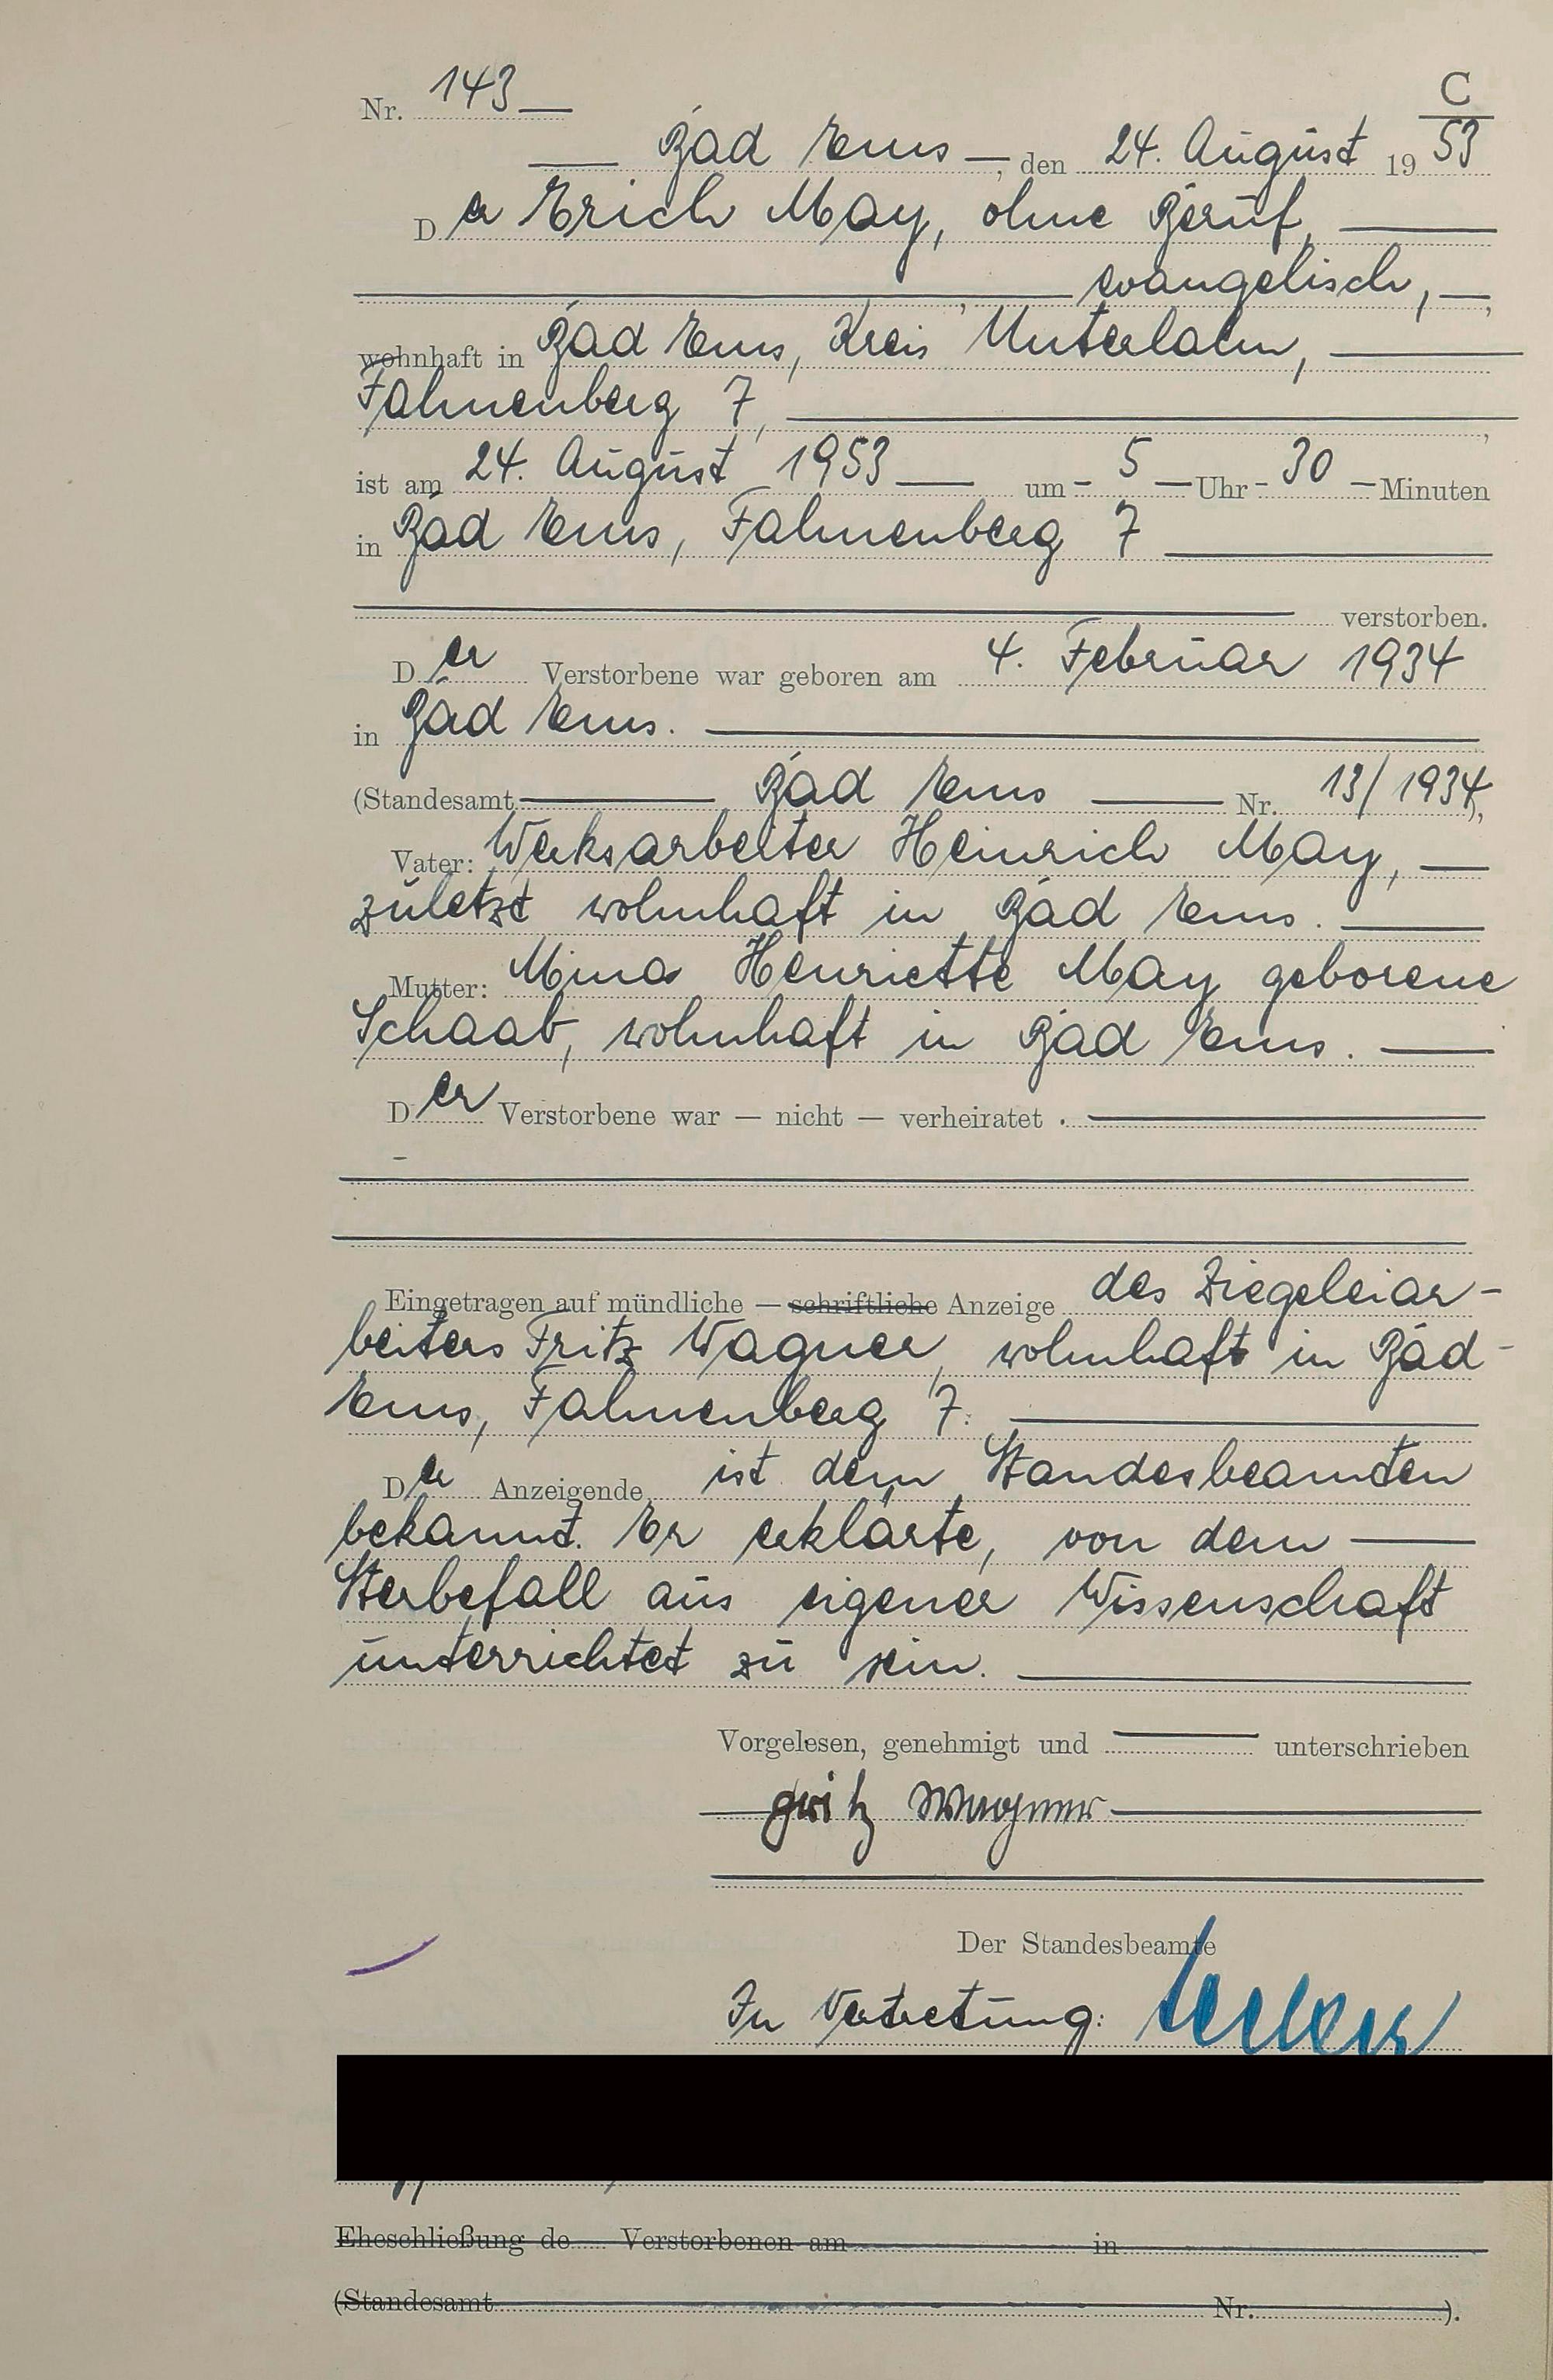 C
Nr. 143
Bad Ems, den 24. August 1953
Der Erich May, ohne Beruf,
evangelisch,
wohnhaft in Bad Ems, Kreis Unterlahn,
Fahnenberg 7,
ist am 24. August 1953 um 5 Uhr 30 Minuten
in Bad Ems, Fahnenberg 7
verstorben.
Der Verstorbene war geboren am 4. Februar 1934
in Bad Ems.
(Standesamt Bad Ems Nr. 13/1934),
Vater: Werksarbeiter Heinrich May,
zuletzt wohnhaft in Bad Ems.
Mutter: Mina Henriette May geborene
Schaab, wohnhaft in Bad Ems.
Der Verstorbene war — nicht — verheiratet.
Eingetragen auf mündliche — schriftliche Anzeige des Ziegeleiar-
beiters Fritz Wagner, wohnhaft in Bad-
Ems, Fahnenberg 7.
Der Anzeigende ist dem Standesbeamten
bekannt. Er erklärte, von dem
Sterbefall aus eigener Wissenschaft
unterrichtet zu sein.
Vorgelesen, genehmigt und unterschrieben
Fritz Wagner
Der Standesbeamte
In Vertretung:
Eheschließung de Verstorbenen am in
(Standesamt Nr. ).